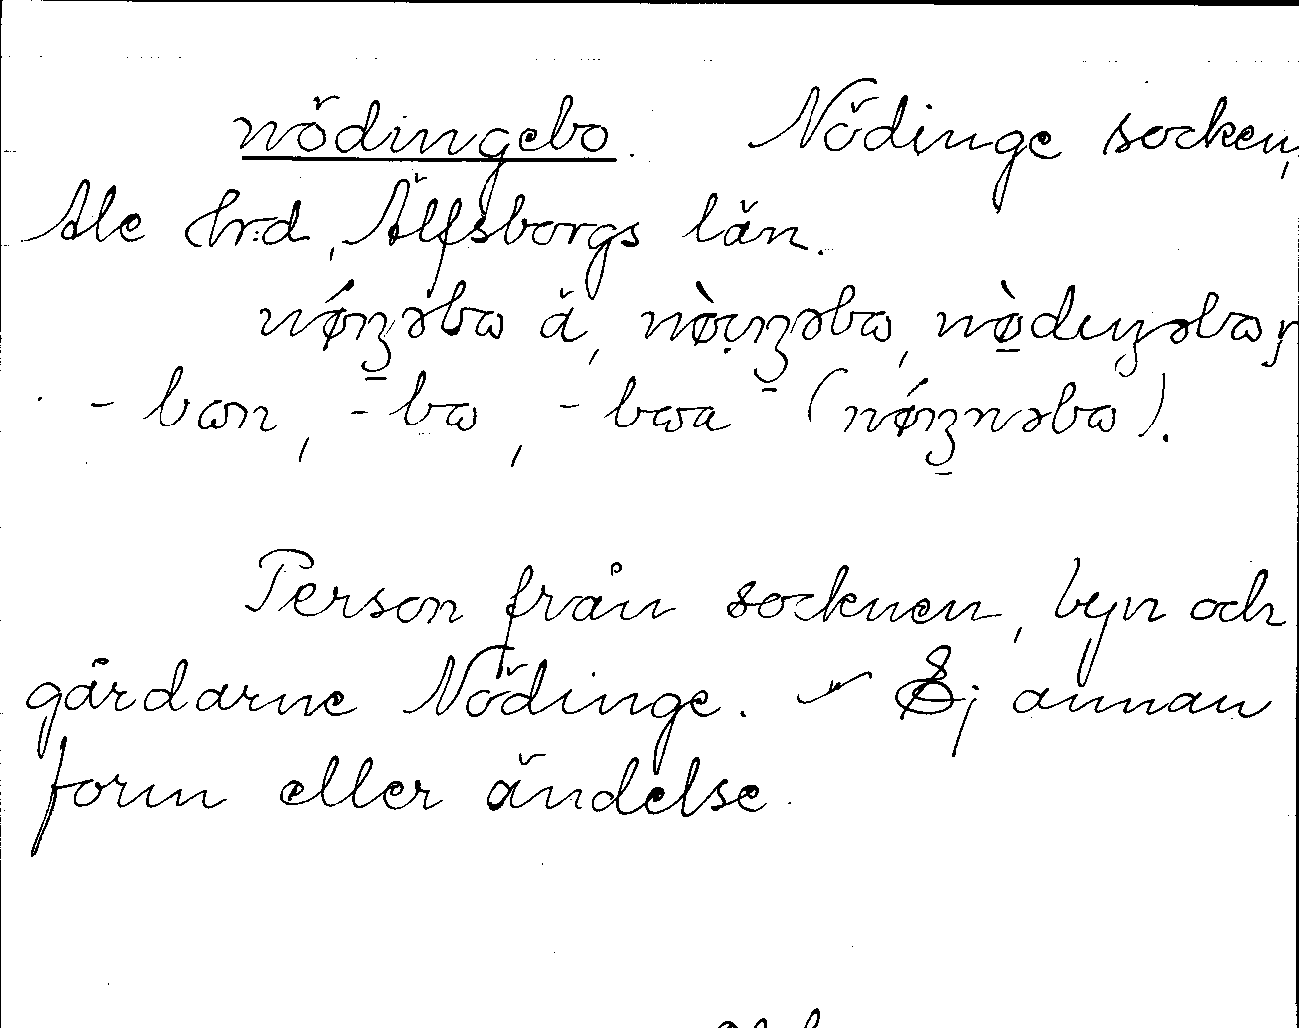 nödingebo. Nödinge socken,
Ale hrd, Älfsborgs län.
nǿŋəbω ä, nø̀ıŋəbω, nø̀dıŋəbω;
-bωn, -bω, -bωa (nǿŋnəbω).
Person från socknen, byn och
gårdarne Nödinge. – Ej annan
form eller ändelse.